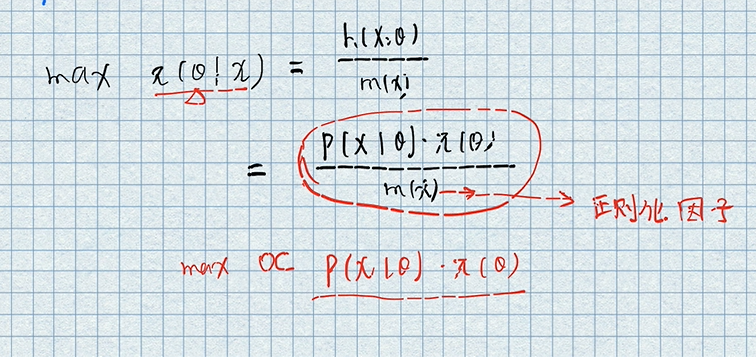 max π(θ|x) = h(x,θ) / m(x)
= p(x|θ)·π(θ) / m(x) → 正则化因子
max ∝ p(x|θ)·π(θ)